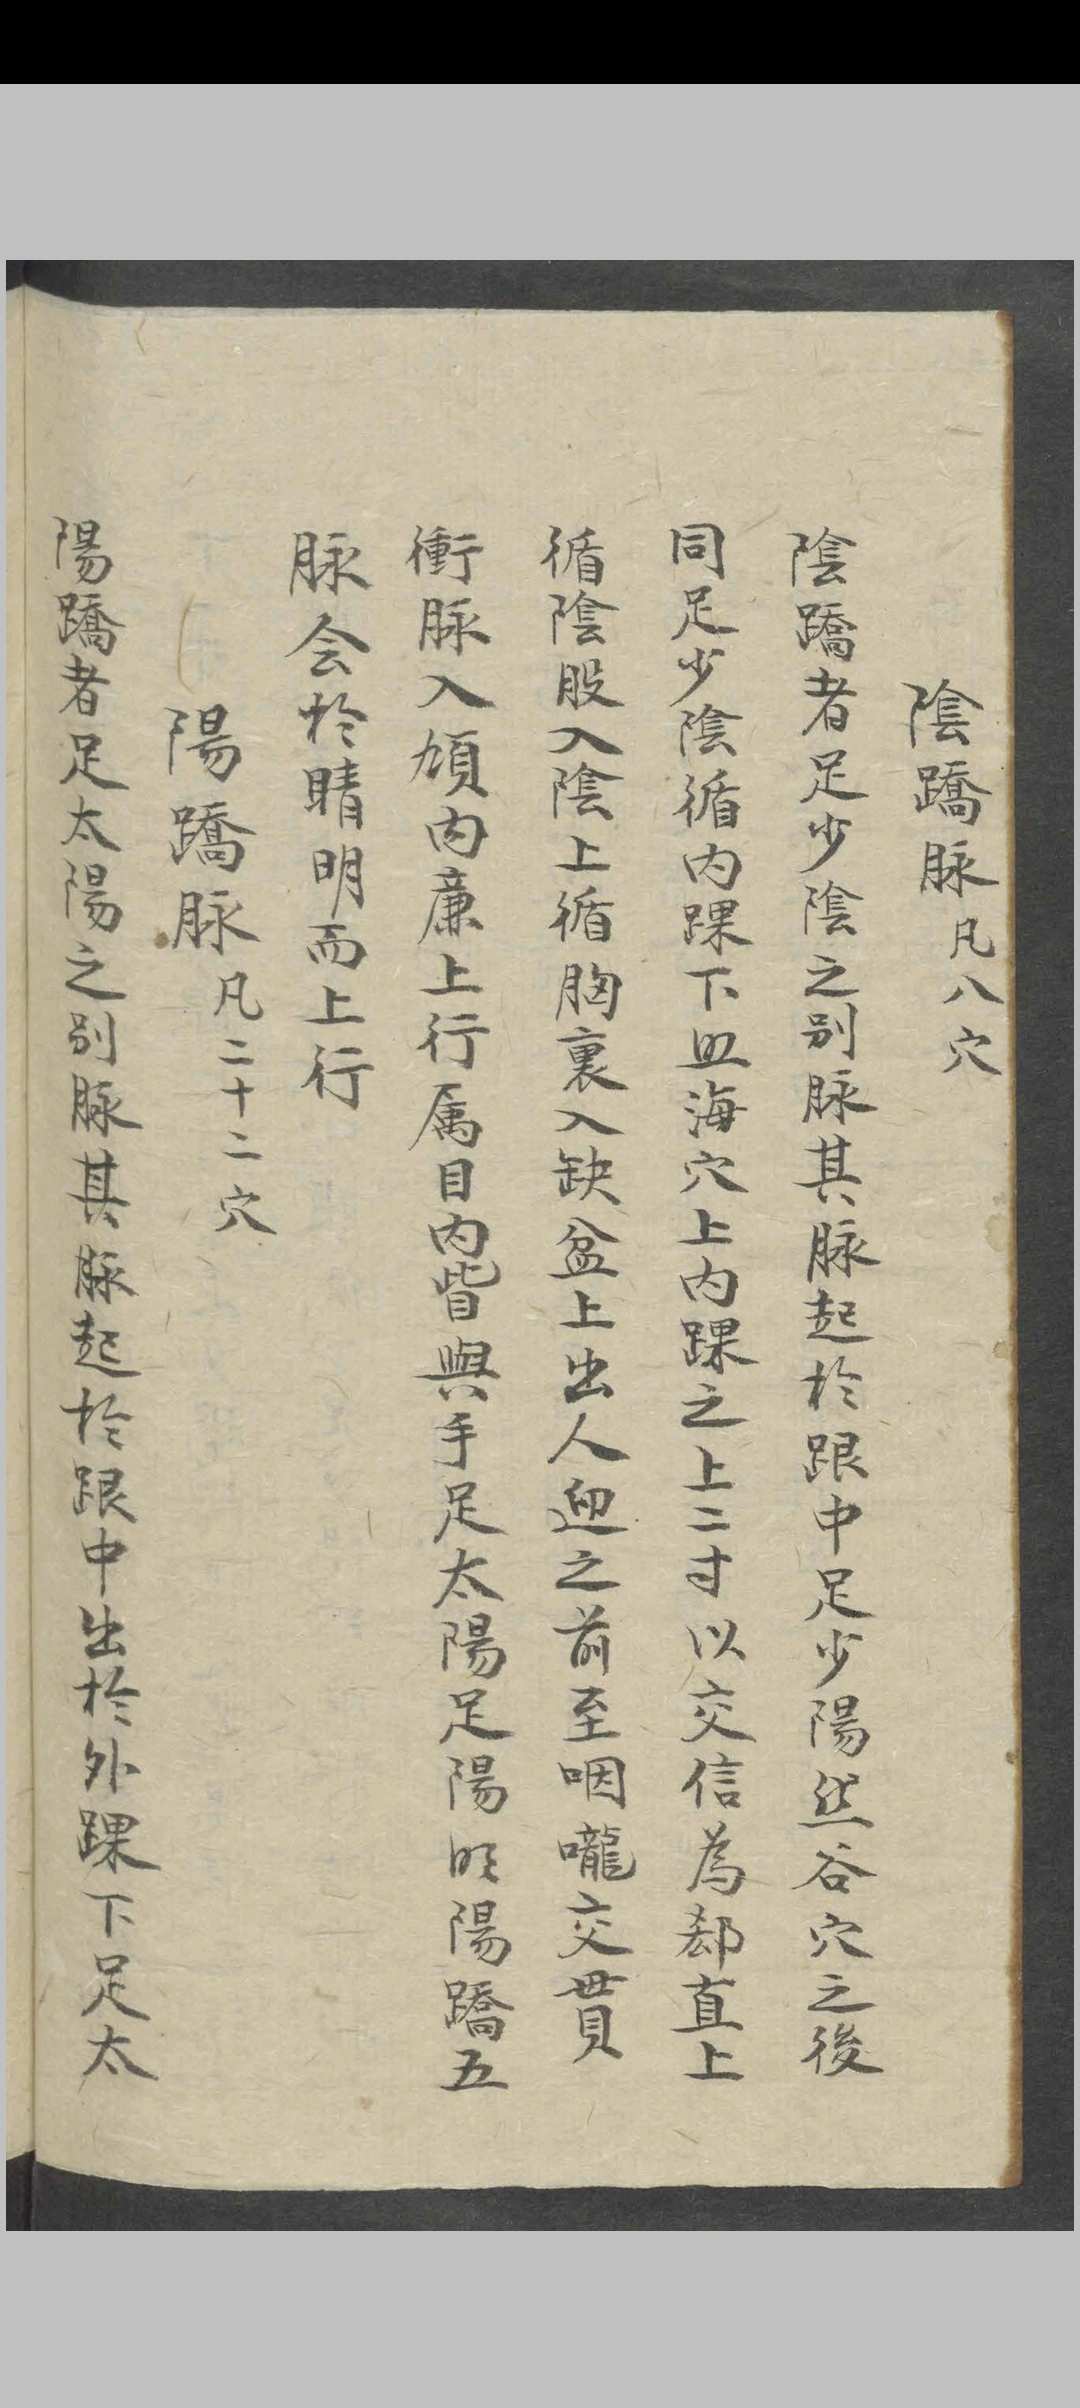 陰蹻脉凡八穴
陰蹻者足少陰之别脉其脉起於跟中足少陽然谷穴之後
同足少陰循内踝下照海穴上内踝之上二寸以交信為郄直上
循陰股入陰上循胸裏入缺盆上出人迎之前至咽嚨交貫
衝脉入頄内廉上行属目内眥與手足太陽足陽明陽蹻五
脉会於睛明而上行
陽蹻脉凡二十二穴
陽蹻者足太陽之别脉其脉起於跟中出於外踝下足太